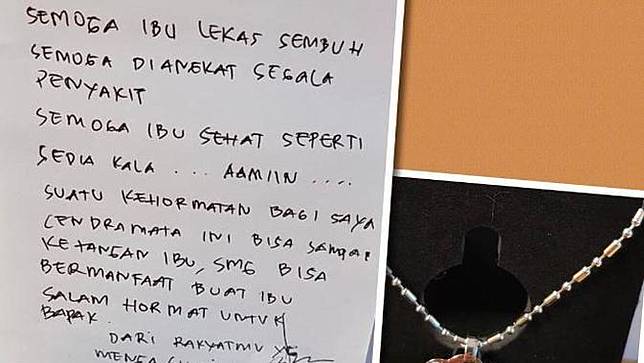 SEMOGA IBU LEKAS SEMBUH
SEMOGA DIANGKAT SEGALA
PENYAKIT
SEMOGA IBU SEHAT SEPERTI
SEDIA KALA ... AAMIIN ....
SUATU KEHORMATAN BAGI SAYA
CENDRAMATA INI BISA SAMPAI
KETANGAN IBU, SMG BISA
BERMANFAAT BUAT IBU
SALAM HORMAT UNTUK
BAPAK
DARI RAKYATMU